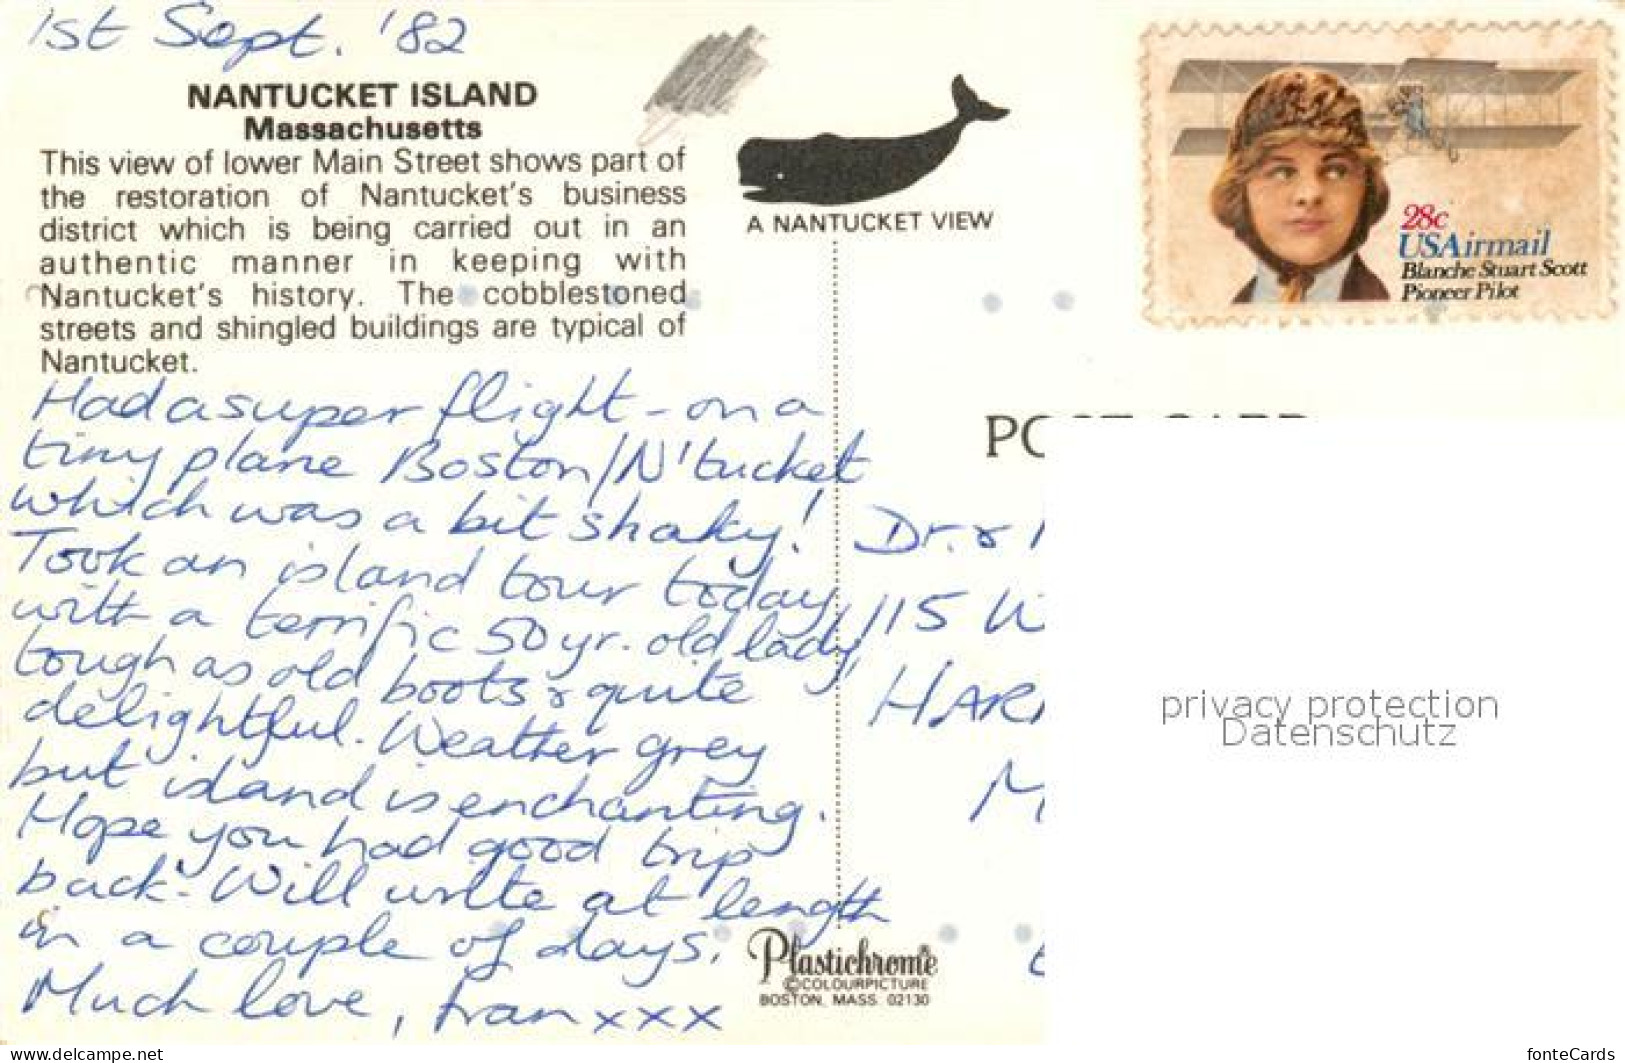 1st Sept. '82
NANTUCKET ISLAND
Massachusetts
This view of lower Main Street shows part of
the restoration of Nantucket's business
district which is being carried out in an
authentic manner in keeping with
Nantucket's history. The cobblestoned
streets and shingled buildings are typical of
Nantucket.
Had a super flight - on a
tiny plane Boston/N'tucket
which was a bit shaky!
Took an island tour today,
with a terrific 50 yr. old lady,
tough as old boots & quite
delightful. Weather grey
but island is enchanting.
Hope you had good trip
back. Will write at length
in a couple of days.
Much love, Fran xxx
A NANTUCKET VIEW
28c
USAirmail
Blanche Stuart Scott
Pioneer Pilot
POST CARD
Dr. &
115 W
HAR
M
Plastichrome®
©COLOURPICTURE
BOSTON, MASS. 02130
privacy protection
Datenschutz
www.delcampe.net
fonteCards